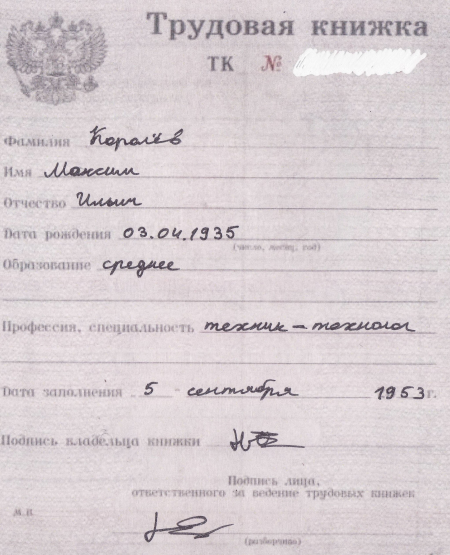 Трудовая книжка
ТК №
Фамилия Королёв
Имя Максим
Отчество Ильич
Дата рождения 03.04.1935
(число, месяц, год)
Образование среднее
Профессия, специальность техник-технолог
Дата заполнения 5 сентября 1953 г.
Подпись владельца книжки
Подпись лица,
ответственного за ведение трудовых книжек
М.П.
(разборчиво)